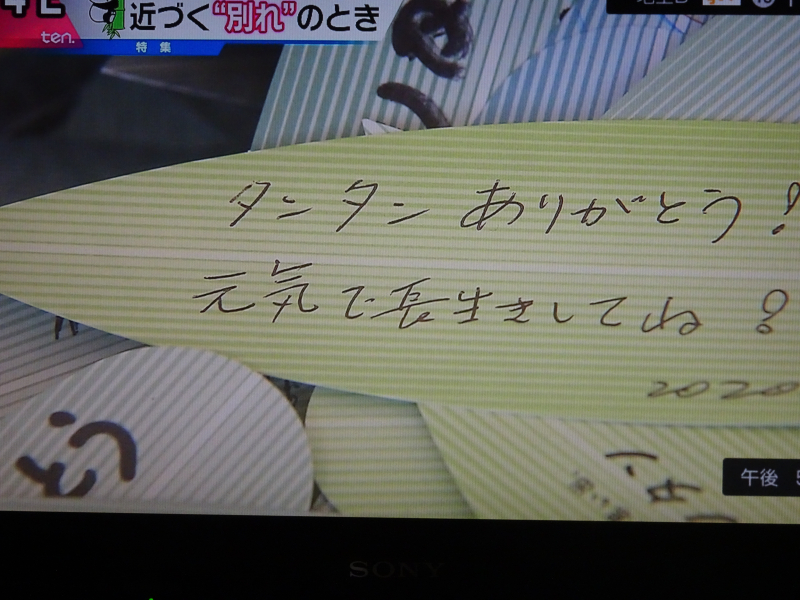 近づく“別れ”のとき
ten.
特集
タンタン ありがとう!
元気で長生きしてね!
2020
とう
午後 5
SONY